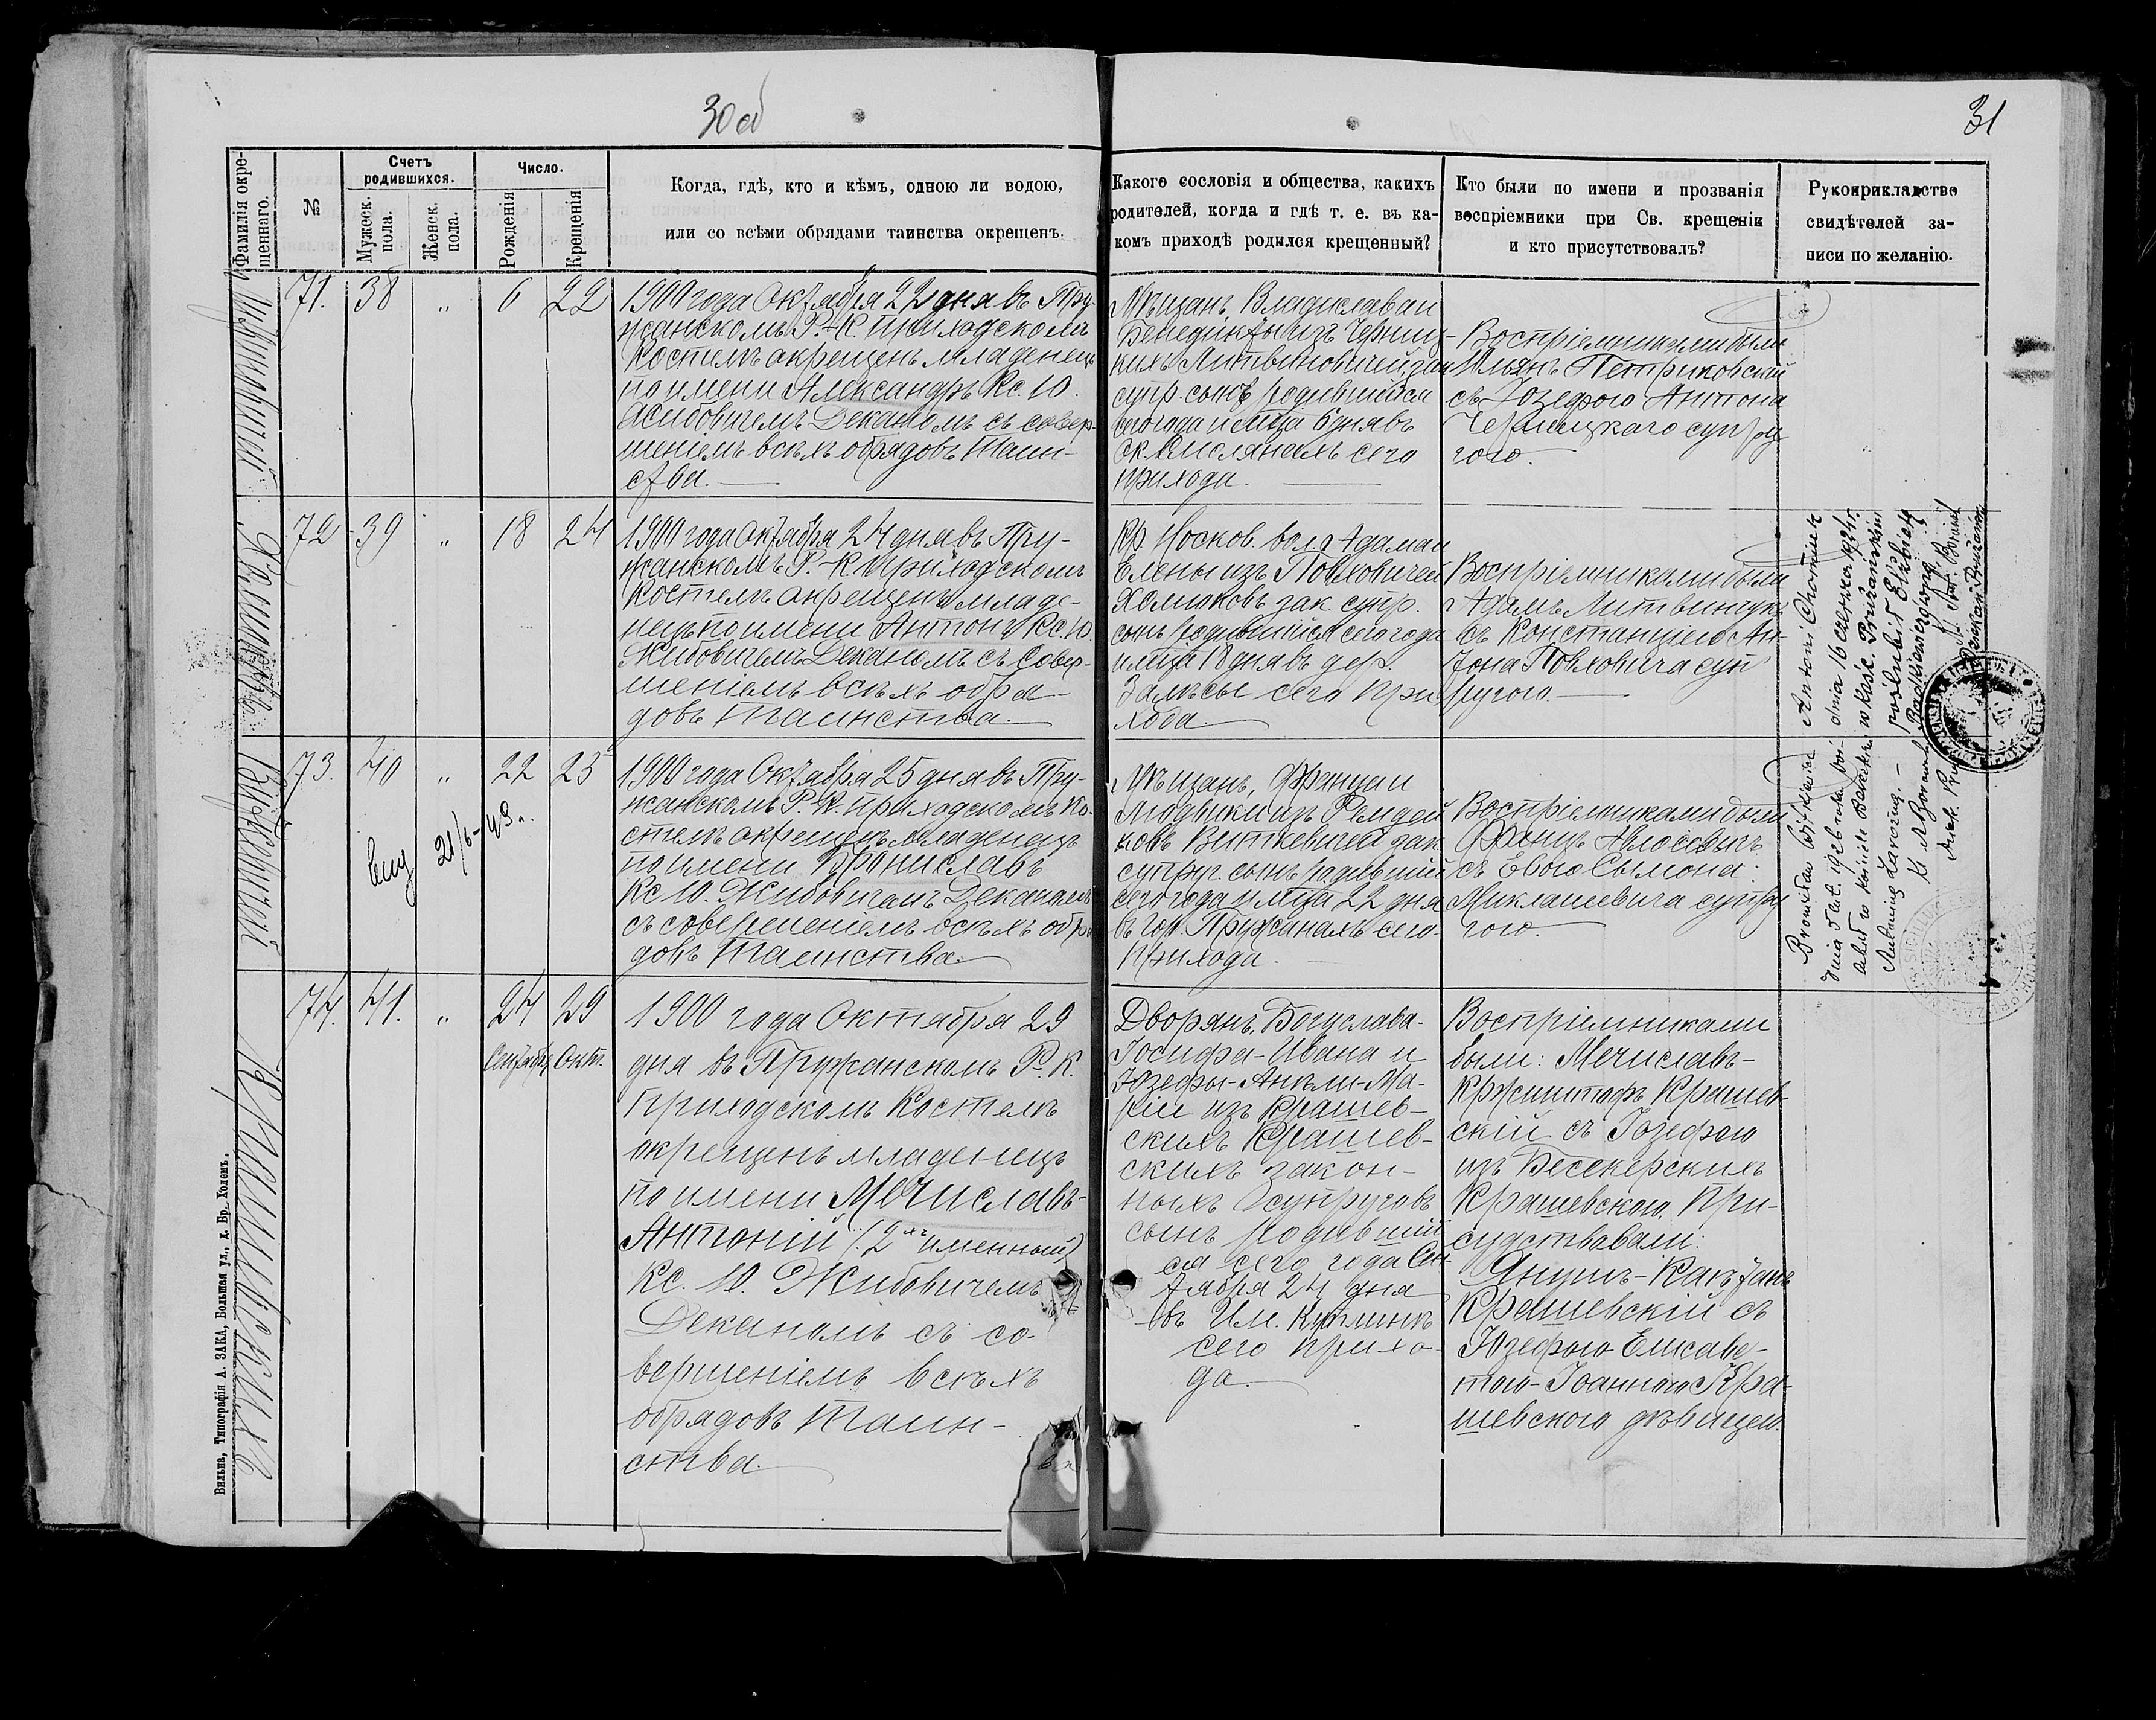 30об
31
Фамилія окре-
щеннаго.
№
Счетъ
родившихся.
Мужеск.
пола.
Женск.
пола.
Число.
Рожденія
Крещенія
Когда, гдѣ, кто и кѣмъ, одною ли водою,
или со всѣми обрядами таинства окрещенъ.
Какого сословія и общества, какихъ
родителей, когда и гдѣ т. е. въ ка-
комъ приходѣ родился крещенный?
Кто были по имени и прозванія
воспріемники при Св. крещеніи
и кто присутствовалъ?
Рукоприкладство
свидѣтелей за-
писи по желанію.
Литвиновичей
71. 38 „ 6 22
1900 года Октября 22 дня въ Пру-
жанскомъ Р.-К. приходскомъ
Костелѣ окрещенъ младенецъ
по имени Александръ Кс. Ю.
Жибовичемъ Деканомъ съ совер-
шеніемъ всѣхъ обрядовъ Таин-
ства.
Мѣщанъ, Владислава и
Бенедикты изъ Черниц-
кихъ Литвиновичей, зак
супр. сынъ родившійся
сего года и мѣца 6 дня въ
сего
прихода.
Воспріемниками были
Юльянъ Петриковскій
съ Юзефою Антона
Черницкаго супру
гою.
Хомиковъ
72 39 „ 18 24
1900 года Октября 24 дня въ Пру-
жанскомъ Р.-К. приходскомъ
Костелѣ окрещенъ младе-
нецъ по имени Антонъ Кс. Ю.
Жибовичемъ Деканомъ съ совер-
шеніемъ всѣхъ обря-
довъ Таинства.
Кр. Носков. вол. Адама и
Елены изъ Повховичей
Хомиковъ зак супр.
сынъ родившійся сего года
и мѣца 18 дня въ дер.
Залѣсье сего при
хода.
Воспріемниками были
Адамъ Литвинчукъ
съ Констанціею Ан-
тона Повховича суп
ругою.
Antoni Chomik
dnia 16 czerwca 1924 r.
w kośc. Prużańskim
poślubił Elżbietę
Ks. Ant.
Dziekan Prużański
Виткевичей
73. 40 „ 22 25
21/6-43.
1900 года Октября 25 дня въ Пру-
жанскомъ Р. К. приходскомъ Ко-
стелѣ окрещенъ младенецъ
по имени Брониславъ
Кс Ю. Жибовичемъ Деканомъ
съ совершеніемъ всѣхъ обря
довъ Таинства.
Мѣщанъ, Франца и
Людвики изъ
Виткевичей зак
супруг сынъ родившій
сего года и мѣца 22 дня
въ гор. Пружанахъ сего
прихода.
Воспріемниками были
Францъ
съ Евою Сымона
Миклашевича супру
гою.
Bronisław Witkiewicz
dnia 5 1926 roku
ślub w kościele
Крашевскихъ
74. 41. „ 24 29
Сентября Окт.
1900 года Октября 29
дня въ Пружанскомъ Р. К.
Приходскомъ Костелѣ
окрещенъ младенецъ
по имени Мечиславъ-
Антоній (2хъ именный)
Кс. Ю. Жибовичемъ
Деканомъ съ со-
вершеніемъ всѣхъ
обрядовъ Таин-
ства.
Дворянъ, Богуслава-
Іосифа-Ивана и
Юзефы-Анели-Ма-
ріи изъ Крашев-
скихъ Крашев-
скихъ закон-
ныхъ супруговъ
сынъ родившій
ся сего года Сен-
тября 24 дня
въ Им. Куплинѣ
сего прихо-
да.
Воспріемниками
были: Мечиславъ-
Кржиштофъ Крашев-
скій съ Іозефою
изъ Бесекерскихъ
Крашевскою. При-
судствовали:
Янушъ-Каетанъ
Крашевскій съ
Юзефою Елисаве-
тою-Іоанною Кра-
шевскою дѣвицею.
Вильна, Типографія А. ЗАКА, Большая ул., д. Бр. Холемъ.